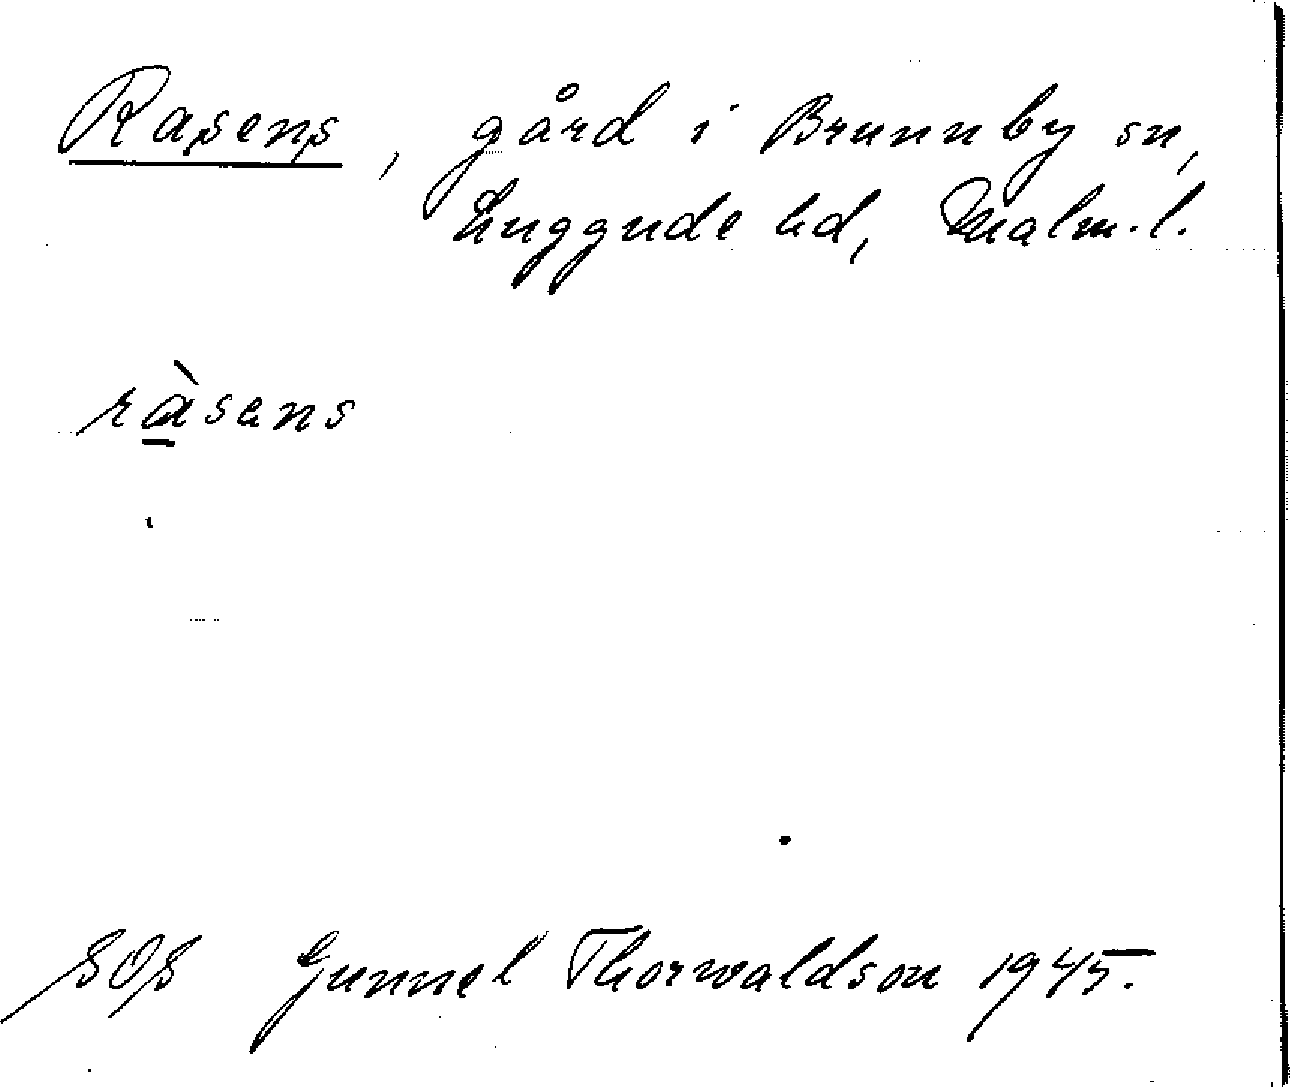 Rasens, gård i Brunnby sn,
Luggude hd, Malm.l.
ràsens
SOS Gunnel Thorwaldson 1945.